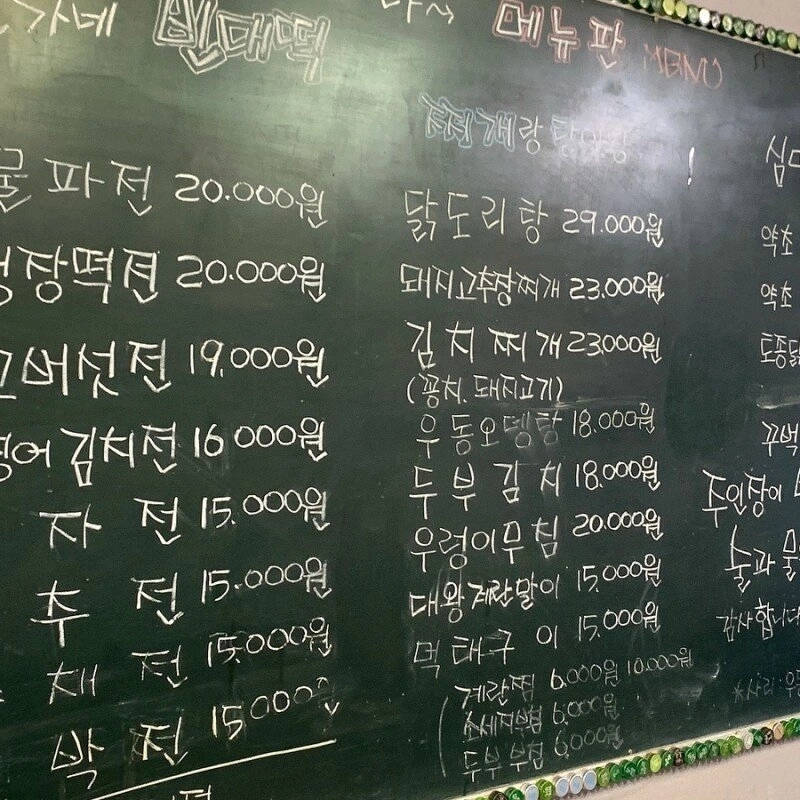 가네 빈대떡
메뉴판 MENU
물파전 20.000원
장떡전 20.000원
버섯전 19,000원
어김치전 16 000원
자전 15.000원
추전 15.000원
채전 15.000원
박전 15000원
찌개랑 탕이랑
닭도리탕 29.000원
돼지고추장찌개 23.000원
김치찌개 23,000원
(꽁치. 돼지고기)
우동오뎅탕 18.000원
두부김치 18.000원
우렁이무침 20.000원
대왕계란말이 15.000원
먹태구이 15.000원
계란찜 6.000원 10.000원
소세지부침 6,000원
두부부침 6,000원
!
약초
약초
토종닭
꾸벅
주인장이
술과 물
감사합니다
*사리·우